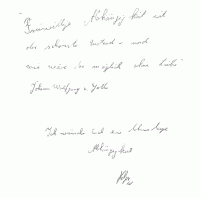 "Freiwillige Abhängigkeit ist
der schönste Zustand – und
wie wäre der möglich ohne Liebe"
Johann Wolfgang v.
Ich wünsche
Abhängigkeit